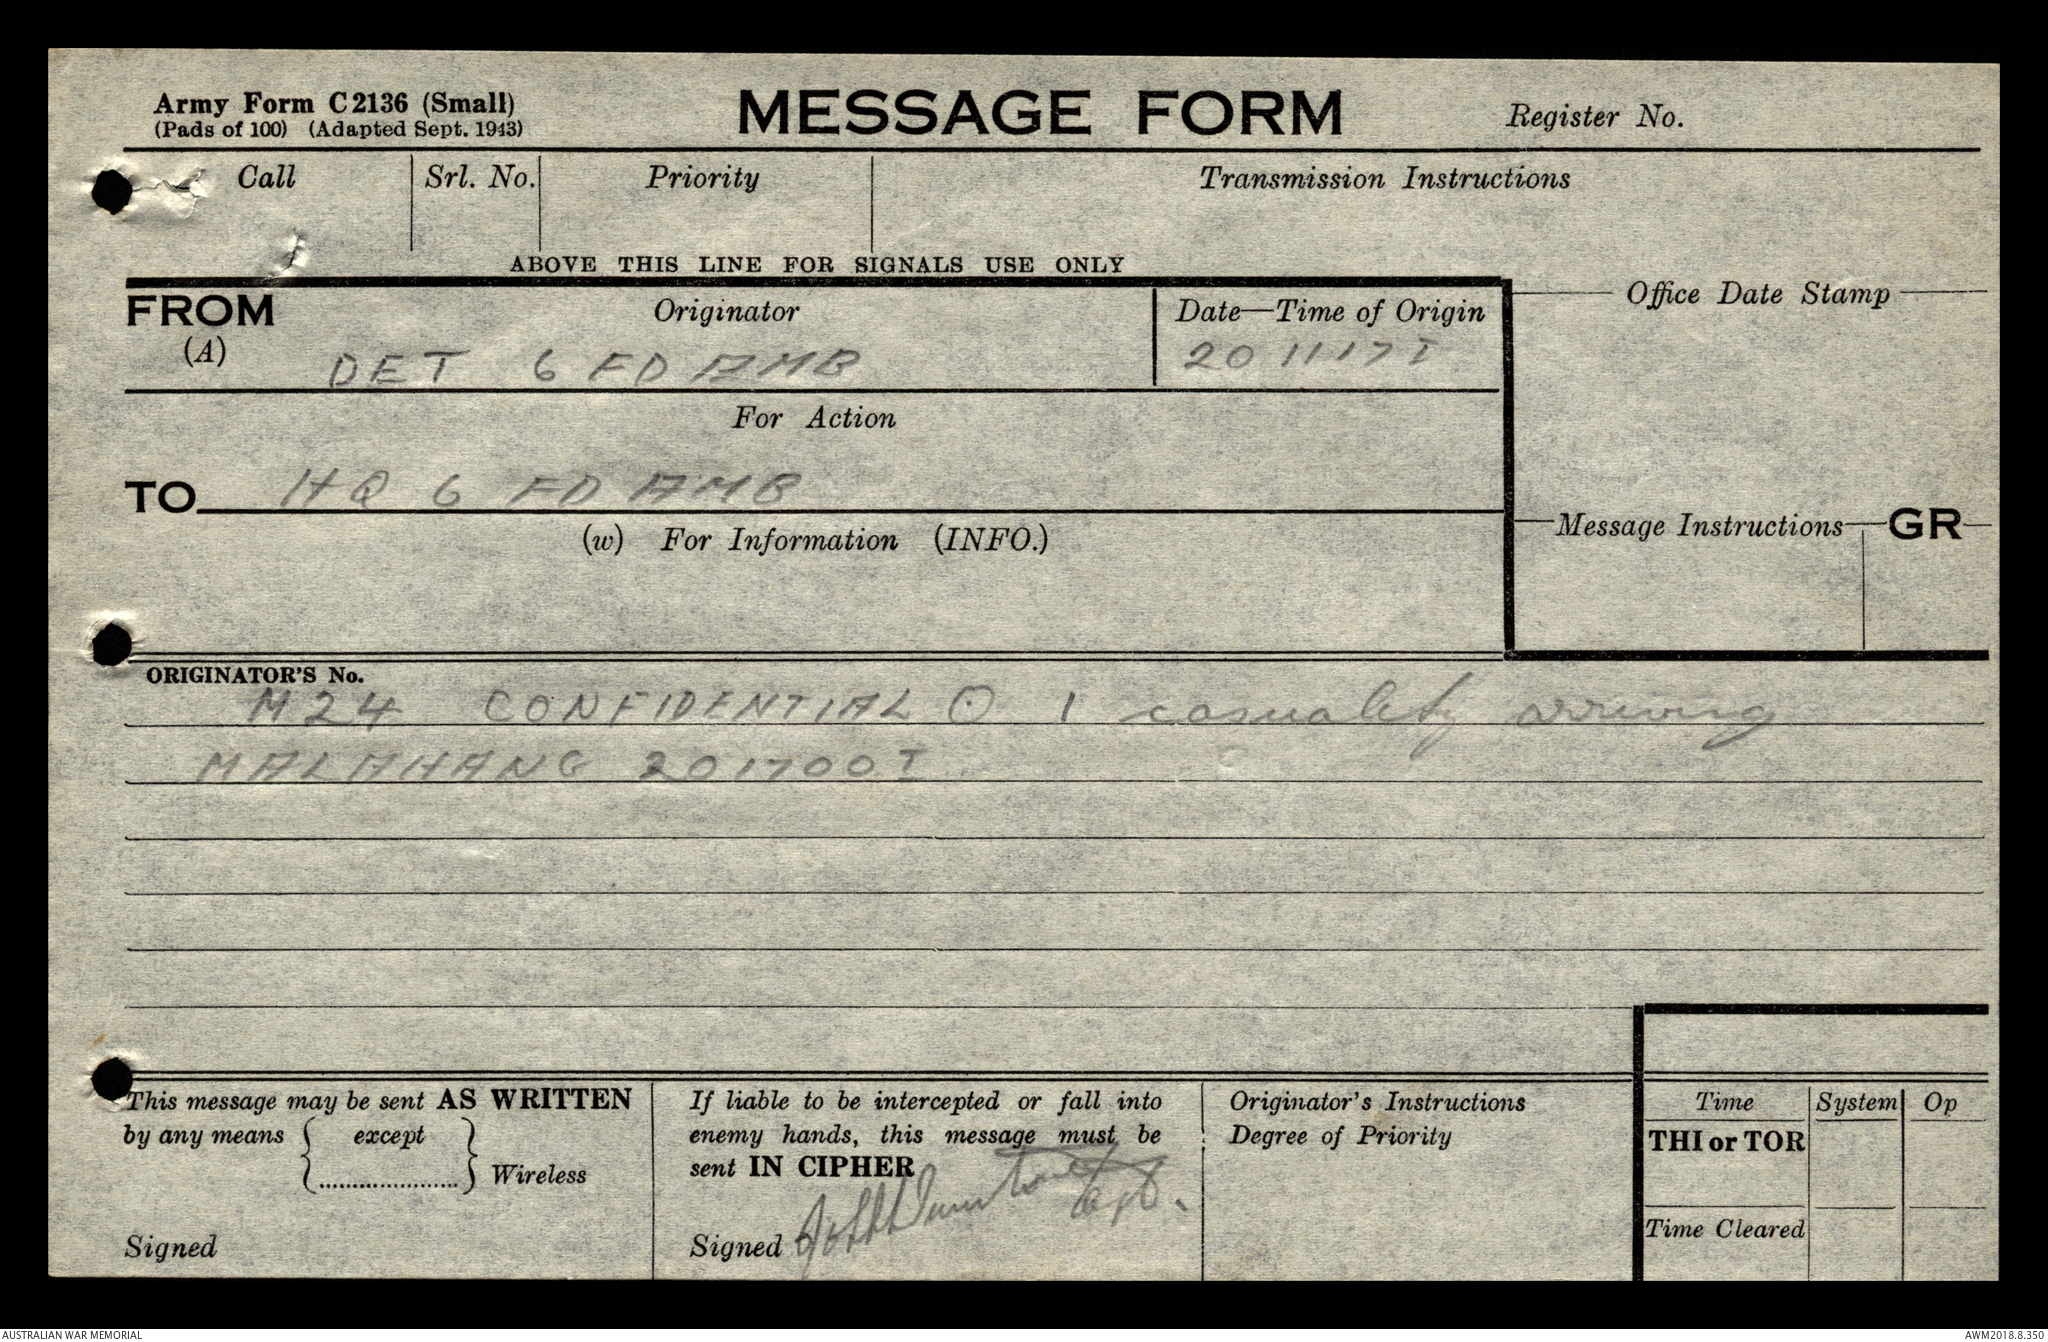 Army Form C2136 (Small)
(Pads of 100) (Adapted Sept. 1943)
MESSAGE FORM
Register No.
Call Srl. No. Priority Transmission Instructions
ABOVE THIS LINE FOR SIGNALS USE ONLY
FROM Originator Date—Time of Origin Office Date Stamp
(A) DET 6 FD AMB 201117I
For Action
TO HQ 6 FD AMB
(w) For Information (INFO.)
Message Instructions GR
ORIGINATOR'S No.
M24 CONFIDENTIAL ⊙ 1 casualty arriving
MALAHANG 201700I
This message may be sent AS WRITTEN
by any means { except }
{ .................... } Wireless
Signed
If liable to be intercepted or fall into
enemy hands, this message must be
sent IN CIPHER
Capt.
Signed
Originator's Instructions
Degree of Priority
Time System Op
THI or TOR
Time Cleared
AUSTRALIAN WAR MEMORIAL
AWM2018.8.350